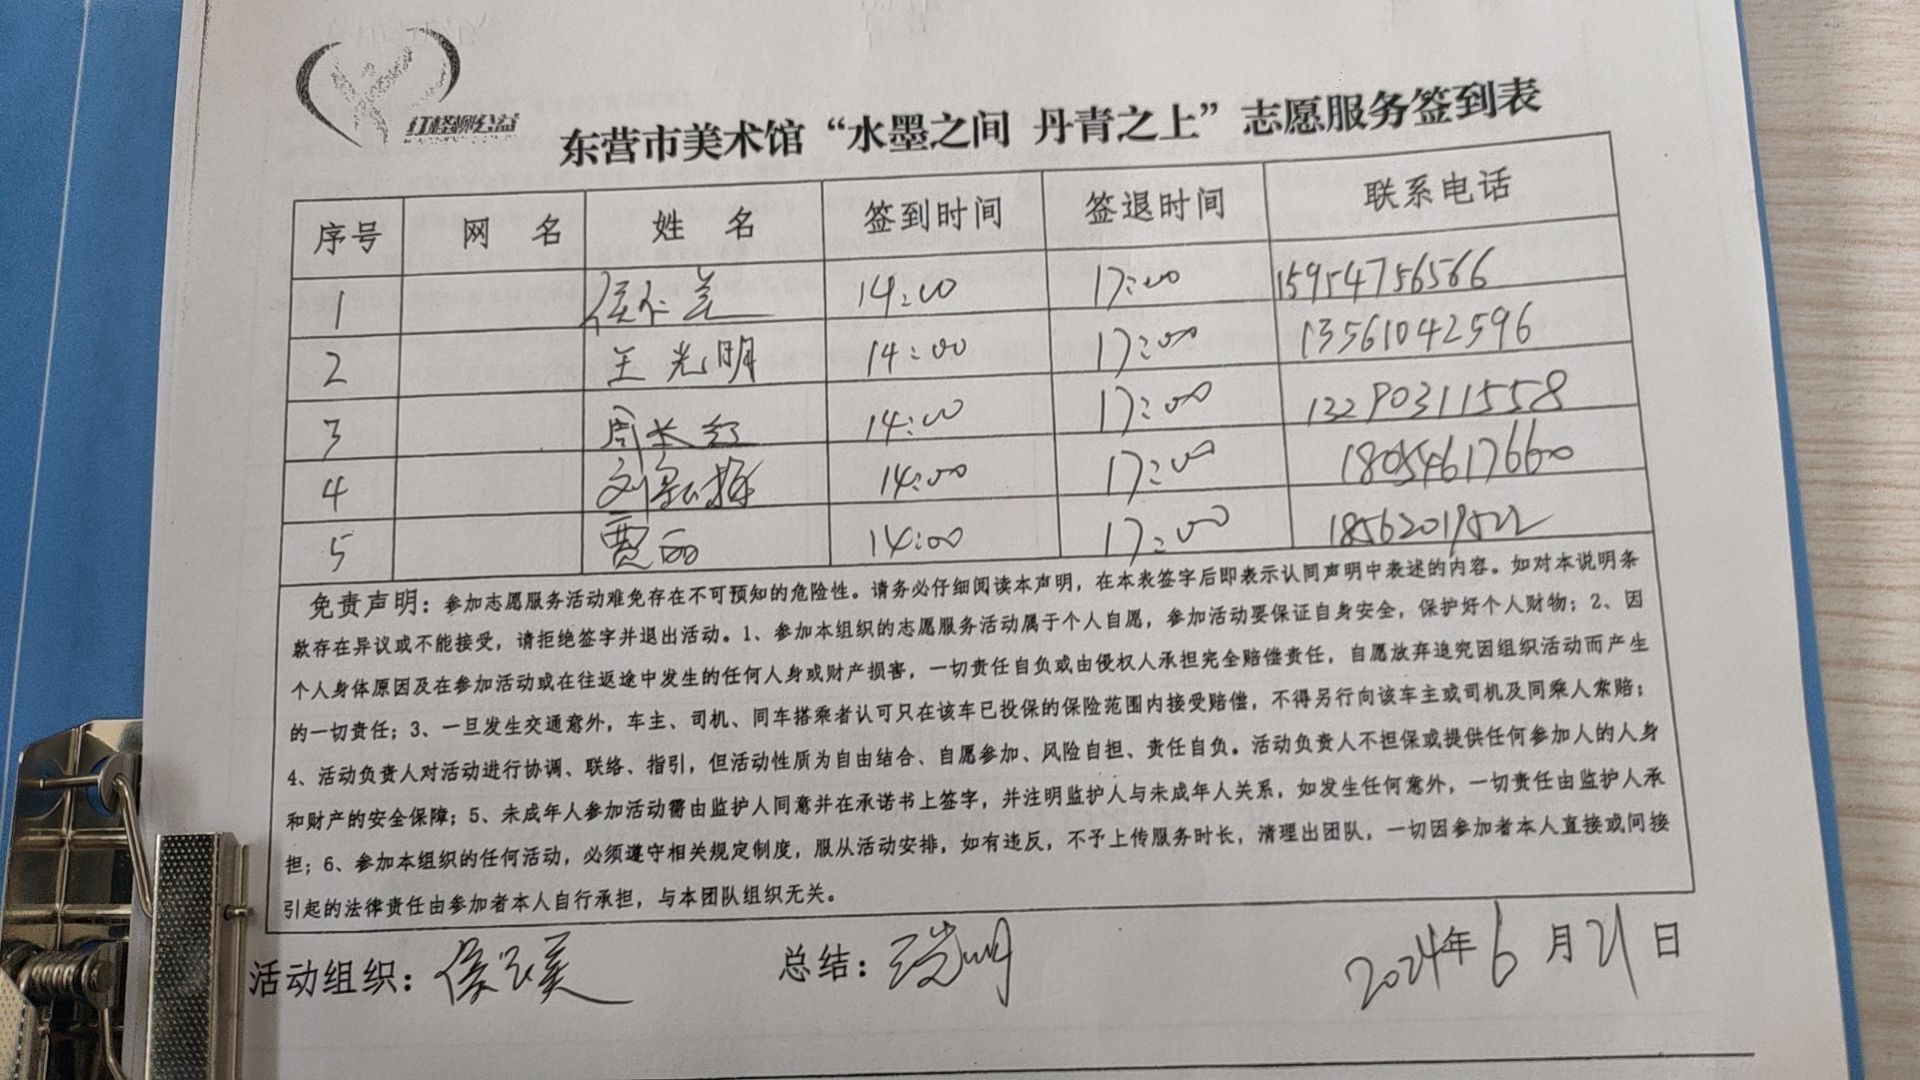 红柽柳公益
东营市美术馆“水墨之间 丹青之上”志愿服务签到表
序号 网 名 姓 名 签到时间 签退时间 联系电话
1 14:00 17:00 15954756566
2 王光明 14:00 17:00 13561042596
3 周长红 14:00 17:00 13290311558
4 14:00 17:00 18054617660
5 贾丽 14:00 17:00 18562019522
免责声明：参加志愿服务活动难免存在不可预知的危险性。请务必仔细阅读本声明，在本表签字后即表示认同声明中表述的内容。如对本说明条
款存在异议或不能接受，请拒绝签字并退出活动。1、参加本组织的志愿服务活动属于个人自愿，参加活动要保证自身安全，保护好个人财物；2、因
个人身体原因及在参加活动或在往返途中发生的任何人身或财产损害，一切责任自负或由侵权人承担完全赔偿责任，自愿放弃追究因组织活动而产生
的一切责任；3、一旦发生交通意外，车主、司机、同车搭乘者认可只在该车已投保的保险范围内接受赔偿，不得另行向该车主或司机及同乘人索赔；
4、活动负责人对活动进行协调、联络、指引，但活动性质为自由结合、自愿参加、风险自担、责任自负。活动负责人不担保或提供任何参加人的人身
和财产的安全保障；5、未成年人参加活动需由监护人同意并在承诺书上签字，并注明监护人与未成年人关系，如发生任何意外，一切责任由监护人承
担；6、参加本组织的任何活动，必须遵守相关规定制度，服从活动安排，如有违反，不予上传服务时长，清理出团队，一切因参加者本人直接或间接
引起的法律责任由参加者本人自行承担，与本团队组织无关。
活动组织： 总结： 2024年6月21日